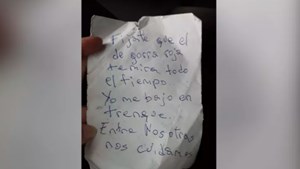 Fijate que el
de gorra roja
te mira todo
el tiempo
Yo me bajo en
trenque.
Entre Nosotras
nos cuidamos